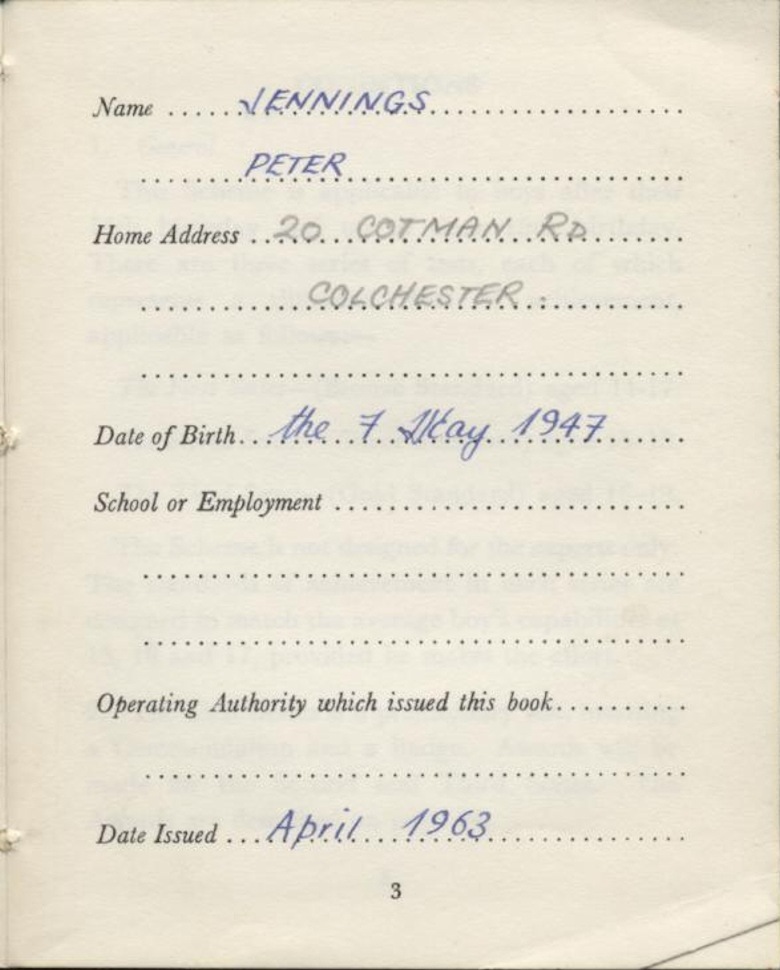 Name ......JENNINGS......
PETER
Home Address ..20 COTMAN RD......
COLCHESTER.
Date of Birth...the 7 May 1947......
School or Employment ......
Operating Authority which issued this book......
Date Issued ...April 1963......
3